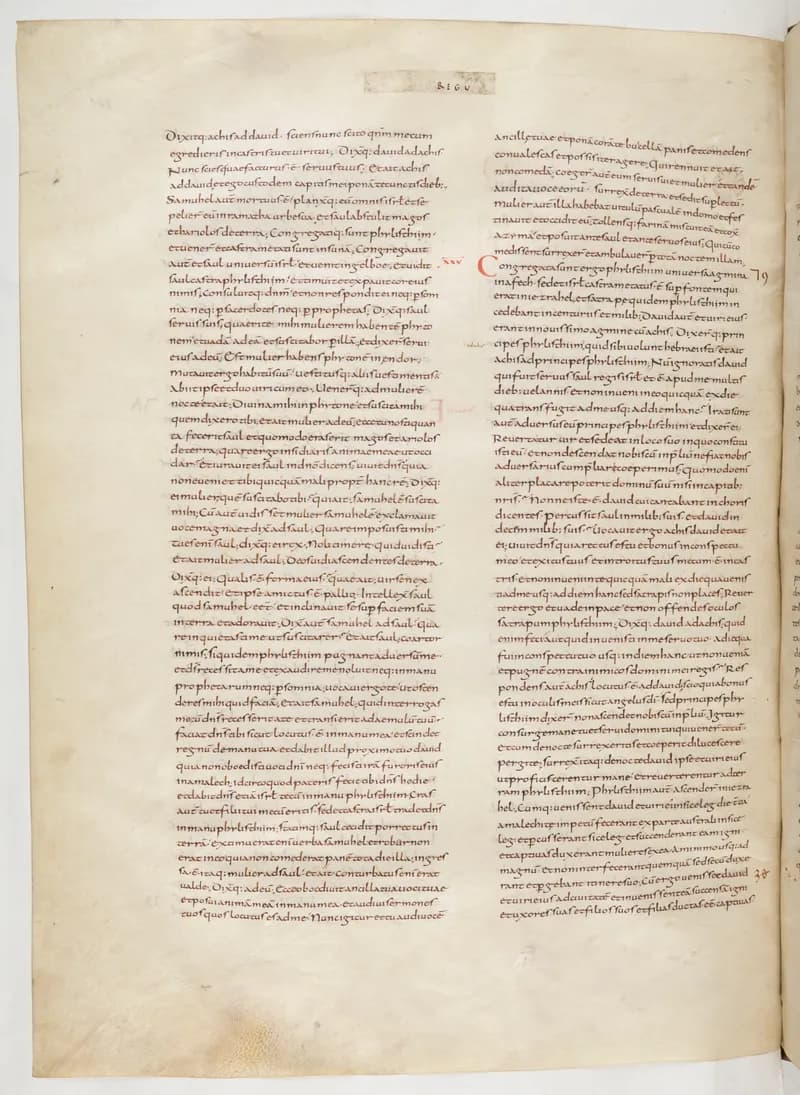 REGU
Dixitq: achis ad dauid. sciens nunc scito qnm mecum
egredieris in castris tu et uiri tui; Dixq: dauid ad achis
Nunc scies quae facturus ē seruus tuus; Et ait achis
ad dauid et ego custodem capitis mei ponā te cunctis dieb;
Samuhel aut mortuus ē planxq: eum omnis isrł et se-
pelier eū in ramatha urbe sua. et saul abstulit magos
et hariolos de terra; Congregatiq: sunt phylisthiim
et uener et castra metati sunt in sunā; Congregauit
aut et saul uniuersū isrł et uenit in gelboe; et uidit
saul castra phylisthiim et timuit et expauit cor eius
nimis; Consuluitq: dnm et non respondit ei neq: p som
nia neq: p sacerdotes neq: p prophetas; Dixq: saul
seruis suis; quaerite mihi mulierem habentē phyto
nem et uadā ad eā et sciscitabor p illā; et dixer serui
eius ad eū; Est mulier habens phytonē in endor;
mutauit ergo habitū suū uestitusq: aliis uestimentis
abiit ipse et duo uiri cum eo; Uenerq: ad mulierē
nocte et ait; Diuina mihi in phytone et suscita mihi
quem dixero tibi; et ait mulier ad eū; ecce tu nosti quan
ta fecerit saul et quomodo eraserit magos et ariolos
de terra; quare ergo insidiaris animae meae ut occi
dar; et iurauit ei saul in dnō dicens; uiuit dns quia
non eueniet tibi quicquā mali propt hanc rē; Dixq:
ei mulier; quē suscitabo tibi; qui ait; samuhelē suscita
mihi; Cū aut uidisset mulier samuhelē exclamauit
uoce magna et dix ad saul; Quare imposuisti mihi
tu es enī saul; dixq: ei rex; Noli timere quid uidisti
et ait mulier ad saul; Deos uidi ascendentes de terra.
Dixq: ei; Qualis ē forma eius; quae ait; uir senex
ascendit et ipse amictus ē pallio; Intellex saul
quod samuhel eet et inclinauit se sup faciem suā
in terra et adorauit; Dix aut samuhel ad saul; Qua
re inquietasti me ut suscitarer; Et ait saul; coartor
nimis; siquidem phylisthiim pugnant aduersū me
et ds recessit a me et exaudire me noluit neq: in manu
prophetarum neq: p somnia; uocaui ergo te ut osten
deres mihi quid faciā; Et ait samuhel; quid interrogas
me; cū dns recesserit a te et transierit ad aemulū tuū
faciet dns tibi sicut locutus ē in manu mea et scindet
regnū de manu tua et dabit illud proximo tuo dauid
quia non obedisti uoci dni neq: fecisti irā furoris eius
in amalech; idcirco quod pateris fecit tibi dns hodie
et dabit dns etiā isrł tecū in manu phylisthiim; Cras
aut tu et filii tui mecū eritis; sed et castra isrł tradet dns
in manu phylisthiim; statimq: saul cecidit porrectus in
terrā; extimuerat enī uerba samuhel et robur non
erat in eo quia non comederat panē tota die illa; ingres
sa ē itaq: mulier ad saul et ait; Conturbatus enī erat
ualde; Dixq: ad eū; Ecce oboediuit ancilla tua uoci tuae
et posui animā meā in manu mea et audiui sermones
tuos quos locutus es ad me; Nunc igitur et tu audi uocē
xxv
ancillae tuae et ponā corā te buccellā panis et comedens
conualescas et possis iter agere; Qui rennuit et ait;
non comedā; coeger aut eum serui sui et mulier et tandē
audita uoce eorū surrex de terra et sedit sup lectū.
mulier aut illa habebat uitulū pascualē in domo et fes
tinauit et occidit eū; tollensq: farinā miscuit eā et cox
azyma et posuit ante saul et ante seruos eius; Qui cū co
medissent surrexer et ambulauer p totā noctem illam.
Congregata sunt ergo phylisthiim uniuersa agmina
in afech; sed et isrł castrametatus ē sup fontem qui
erat in iezrahel; et satrapae quidem phylisthiim in
cedebant in centuriis et milib; Dauid aut et uiri eius
erant in nouissimo agmine cū achis; Dixerq: prin
cipes phylisthiim; quid sibi uolunt hebraei isti; et ait
achis ad principes phylisthiim; Nū ignoratis dauid
qui fuit seruus saul regis isrł et ē apud me multis
dieb: uel annis et non inueni in eo quicquā ex die
qua transfugit ad me usq: ad diem hanc; Irati sunt
aut aduersus eū principes phylisthiim et dixer ei;
Reuertatur uir et sedeat in loco suo in quo constitu
isti eū et non descendat nobiscū in plium ne fiat nobis
aduersarius cum pliari coeperimus; quomodo enī
aliter placare poterit dominū suū nisi in capitib:
nris; Nonne iste ē dauid cui cantabant in choris
dicentes; percussit saul in milib; suis et dauid in
decem milib; suis; Uocauit ergo achis dauid et ait
ei; uiuit dns quia rectus es tu et bonus in conspectu
meo et exitus tuus et introitus tuus mecum ē in cas
tris et non inueni in te quicquā mali ex die qua uenis
ti ad me usq: ad diem hanc sed satrapis non places; Reuer
tere ergo et uade in pace et non offendes oculos
satrapum phylisthiim; Dixq: dauid ad achis; quid
enim feci aut quid inuenisti in me seruo tuo a die qua
fui in conspectu tuo usq: in diem hanc ut non ueniā
et pugnē contra inimicos domini mei regis; Res
pondens aut achis locutus ē ad dauid; scio quia bonus
es tu in oculis meis sicut angelus di; sed principes phy
listhiim dixer non ascendet nobiscū in pliū; Igitur
consurge mane tu et serui domini tui qui uener tecū;
et cum de nocte surrexeritis et coeperit dilucescere
pergite; surrex itaq: de nocte dauid ipse et uiri eius
ut proficiscerentur mane et reuerterentur ad ter
ram phylisthiim; Phylisthiim aut ascender in iezra
hel; Cumq: uenissent dauid et uiri eius in siceleg die tertia
amalechitae impetū fecerant ex parte australi in sice
leg; et pcusserant siceleg et succenderant eam igni
et captiuas duxerant mulieres ex ea. A minimo usq: ad
magnū et non interfecerant quemquā sed secū duxe
rant et pgebant itinere suo; Cū ergo uenisset dauid
et uiri eius ad ciuitatē et inuenissent eā succensā igni
et uxores suas et filios suos et filias ductas eē captiuas